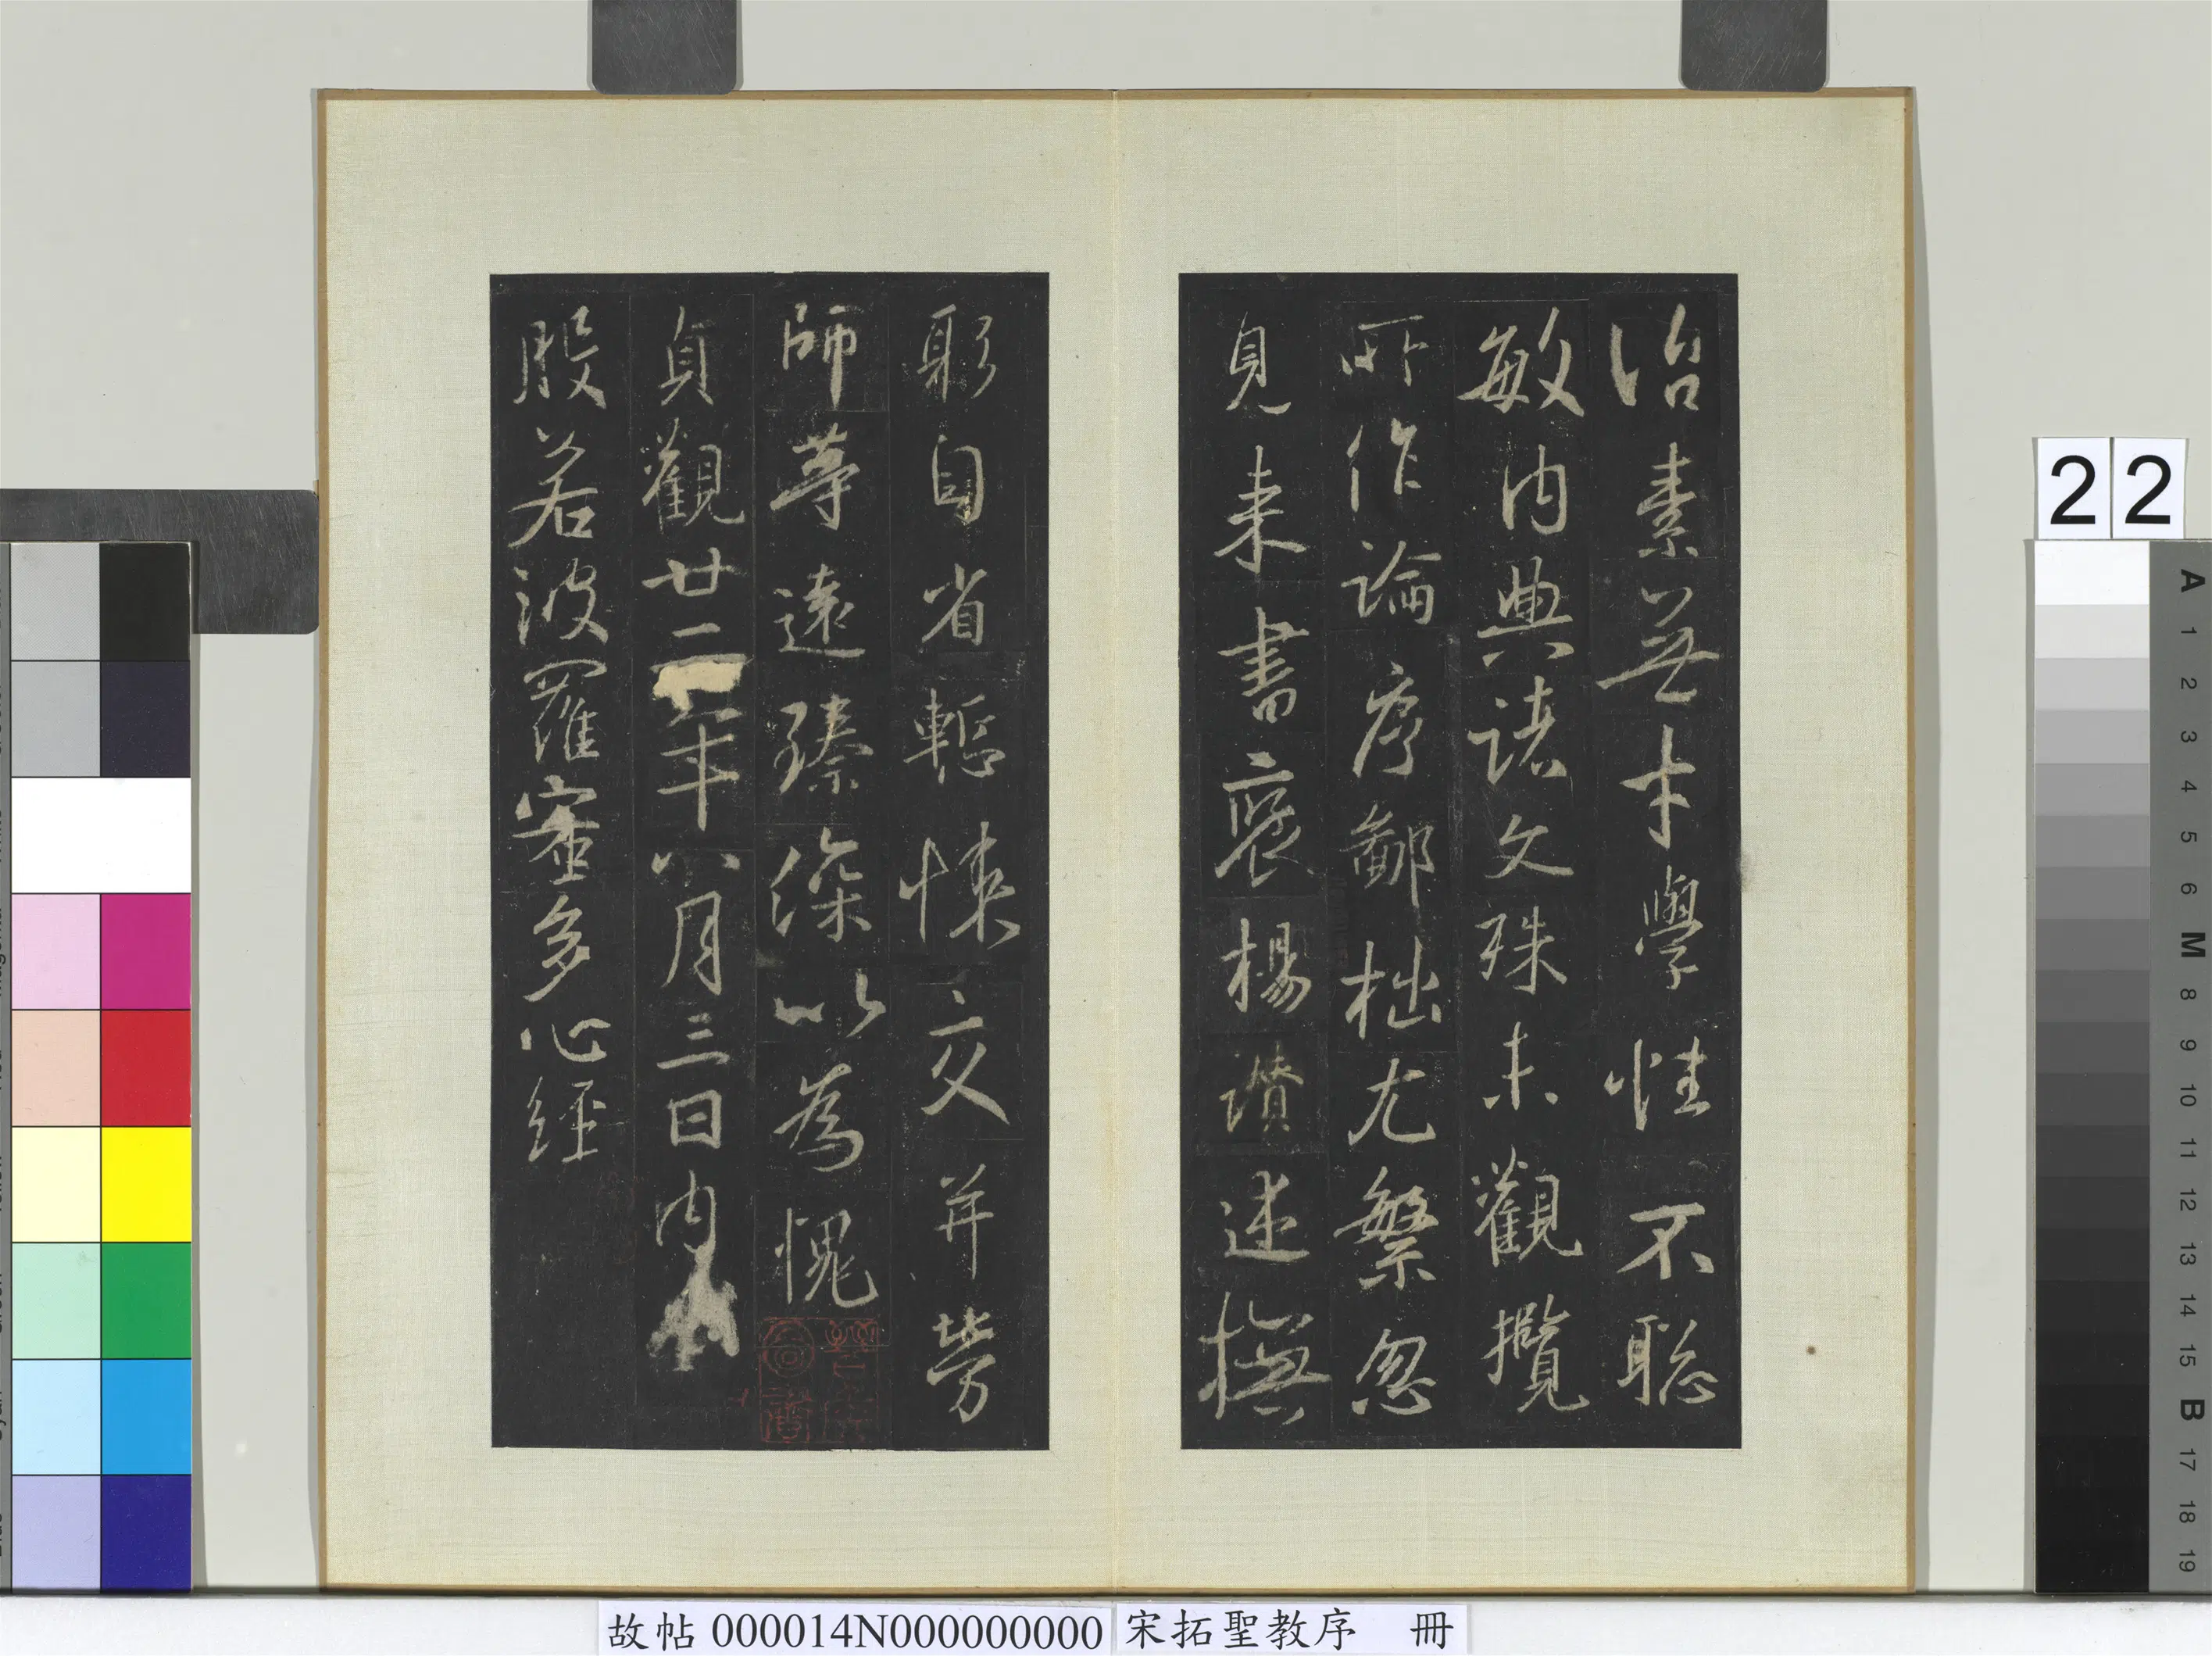 治素無才學性不聡
敏内典諸文殊未觀攬
所作論序鄙拙尤繁忽
見来書襃楊讚述撫
躬自省慙悚交并勞
師等遠臻深以為愧
貞觀廿二年八月三日内
般若波羅蜜多心經
22
A
1
2
3
4
5
6
M
8
9
10
11
12
13
14
15
B
17
18
19
故帖 000014N000000000
宋拓聖教序 冊